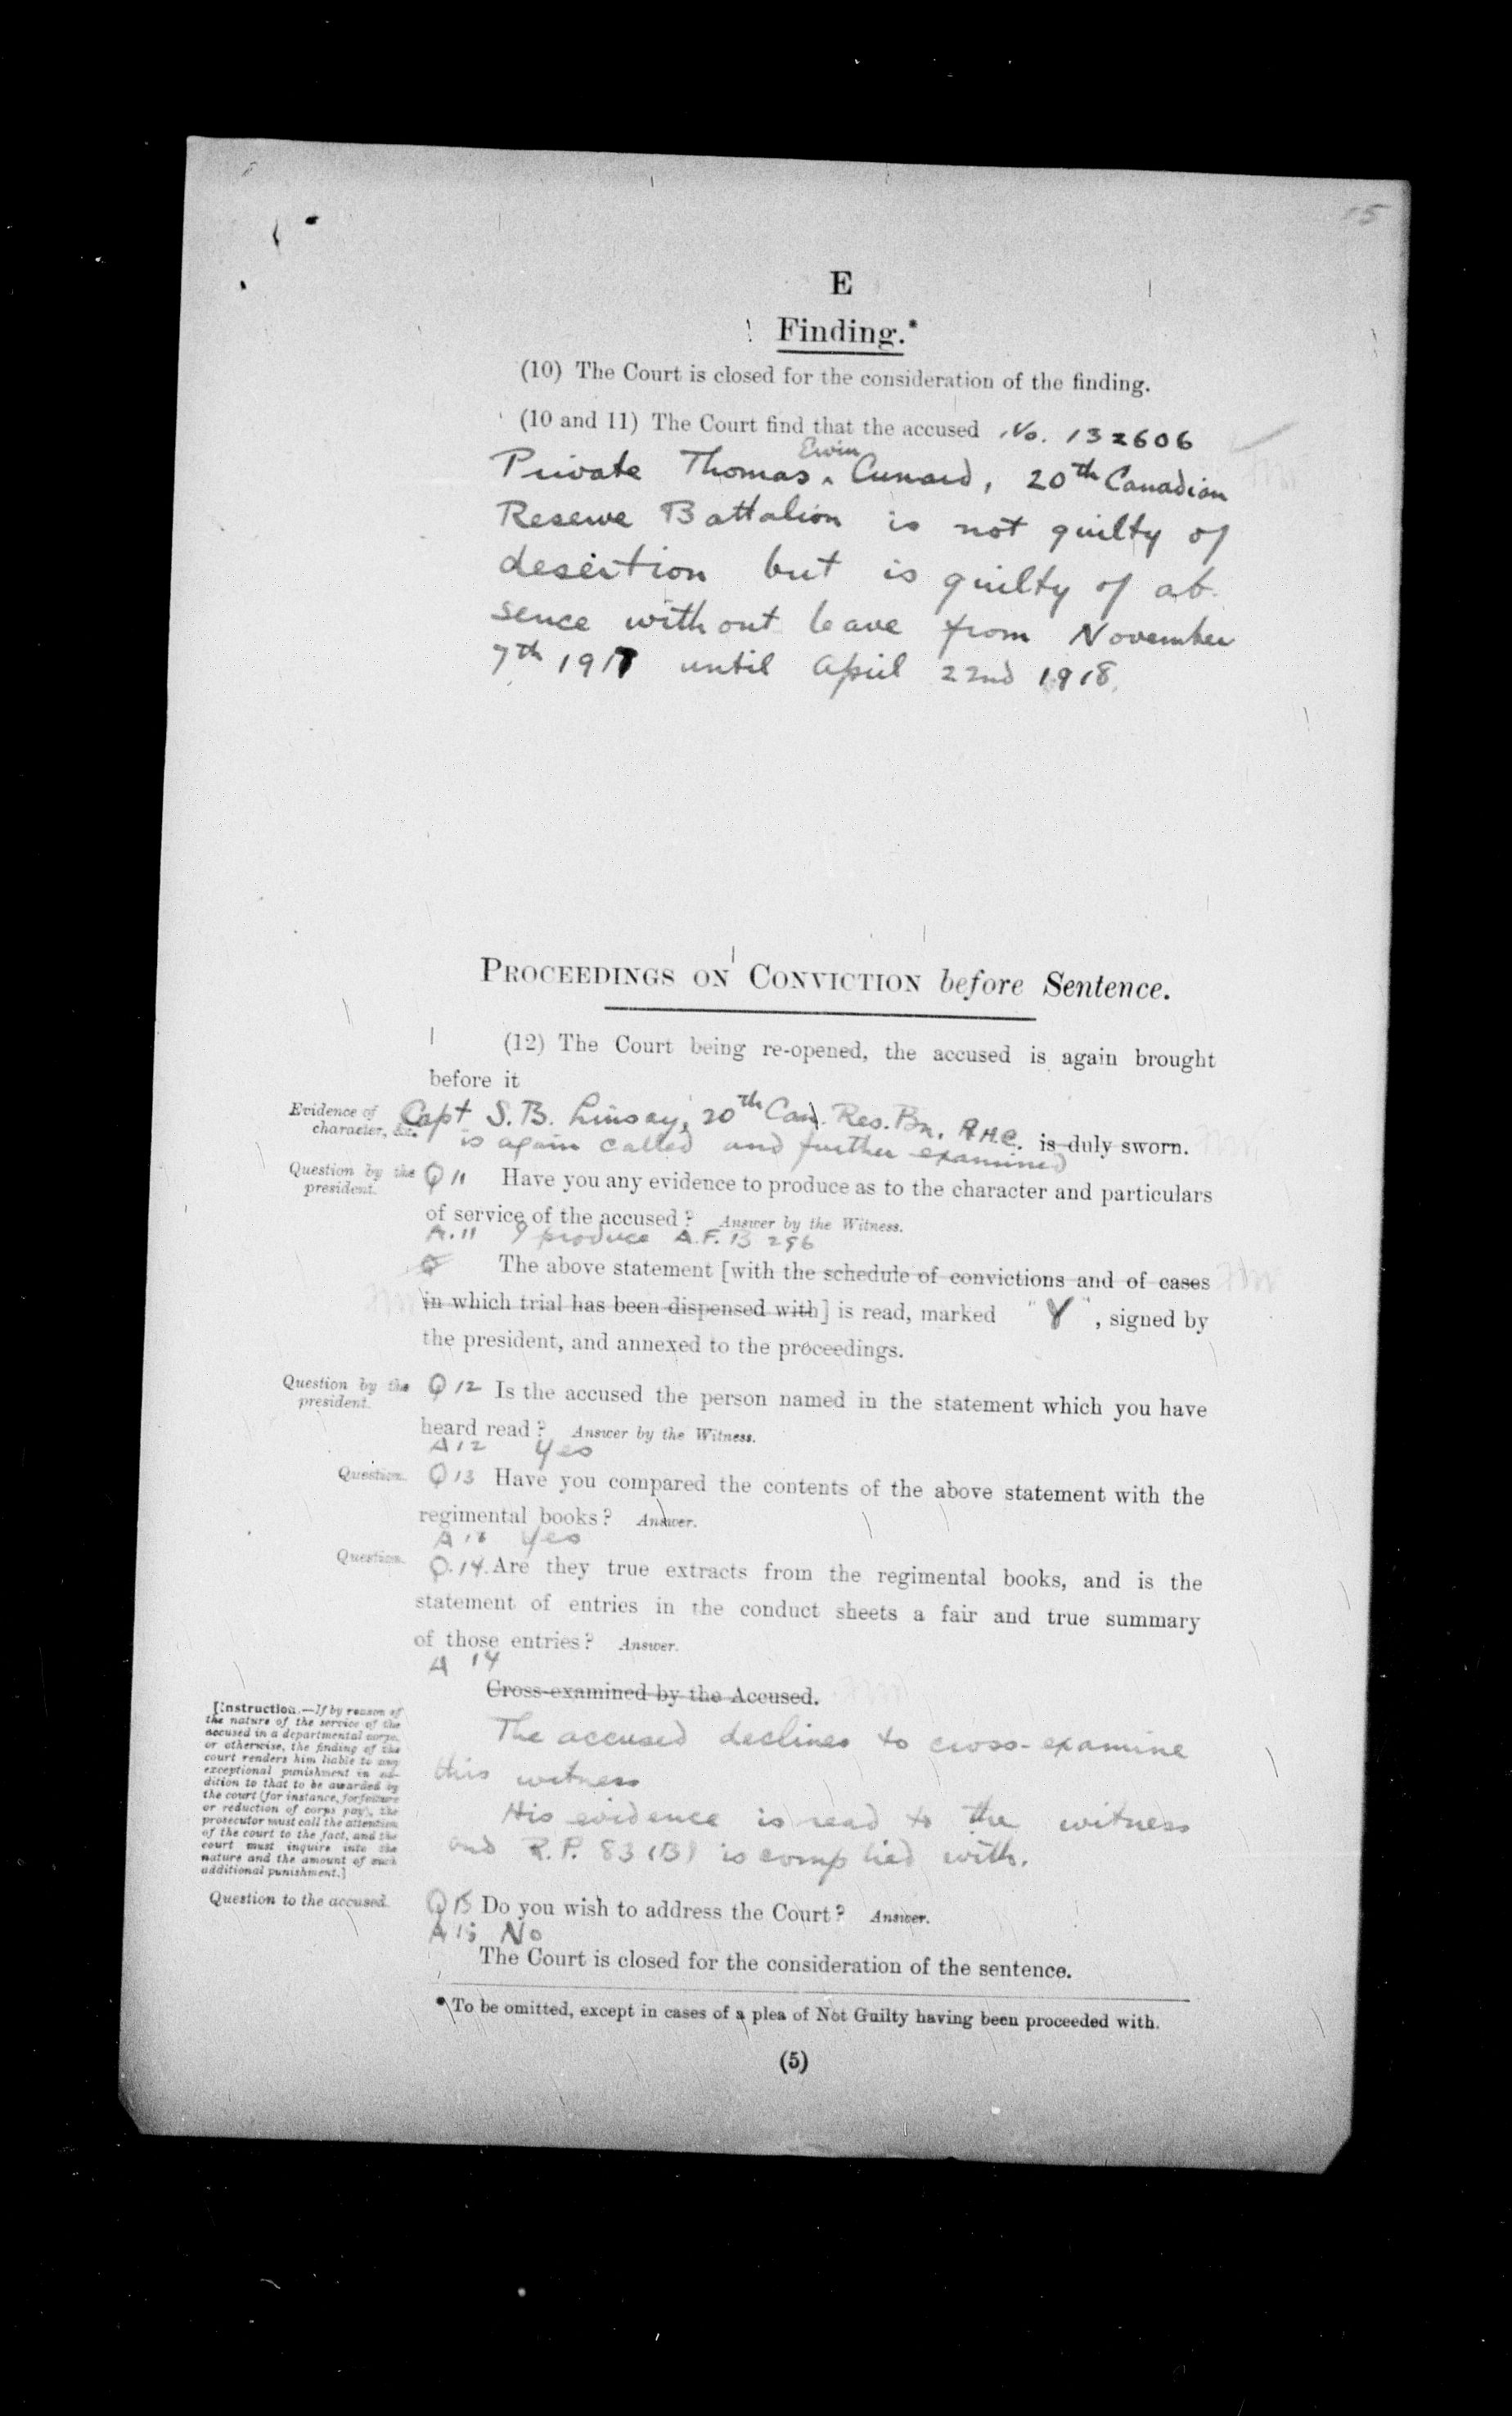 15
E
Finding.*
(10) The Court is closed for the consideration of the finding.
(10 and 11) The Court find that the accused No. 132606
Erwin
Private Thomas ‸ Cunard, 20th Canadian
Reserve Battalion is not guilty of
desertion but is guilty of ab-
sence without leave from November
7th 1917 until April 22nd 1918.
PROCEEDINGS ON CONVICTION before Sentence.
(12) The Court being re-opened, the accused is again brought
before it
Evidence of
character, &c.
Capt S.B. Linsay, 20th Can. Res. Bn. R.H.C. is duly sworn.
is again called and further examined
Question by the
president.
Q 11 Have you any evidence to produce as to the character and particulars
of service of the accused? Answer by the Witness.
A. 11 I produce A.F. B 296
The above statement [with the schedule of convictions and of cases
in which trial has been dispensed with] is read, marked "Y", signed by
the president, and annexed to the proceedings.
Question by the
president.
Q 12 Is the accused the person named in the statement which you have
heard read? Answer by the Witness.
A 12 Yes
Question.
Q 13 Have you compared the contents of the above statement with the
regimental books? Answer.
A 13 Yes
Question.
Q. 14. Are they true extracts from the regimental books, and is the
statement of entries in the conduct sheets a fair and true summary
of those entries? Answer.
A 14
Cross-examined by the Accused.
The accused declines to cross-examine
this witness
His evidence is read to the witness
and R.P. 83 (B) is complied with.
[Instruction.—If by reason of
the nature of the service of the
accused in a departmental corps,
or otherwise, the finding of the
court renders him liable to any
exceptional punishment in ad-
dition to that to be awarded by
the court (for instance, forfeiture
or reduction of corps pay), the
prosecutor must call the attention
of the court to the fact, and the
court must inquire into the
nature and the amount of such
additional punishment.]
Question to the accused.
Q 15 Do you wish to address the Court? Answer.
A 15 No
The Court is closed for the consideration of the sentence.
* To be omitted, except in cases of a plea of Not Guilty having been proceeded with.
(5)